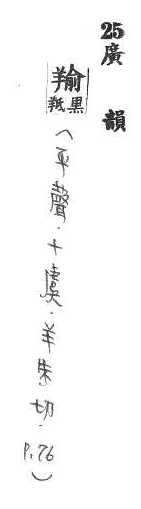 25廣韻
羭 黑羝
(平聲.十虞.羊朱切.P.76)